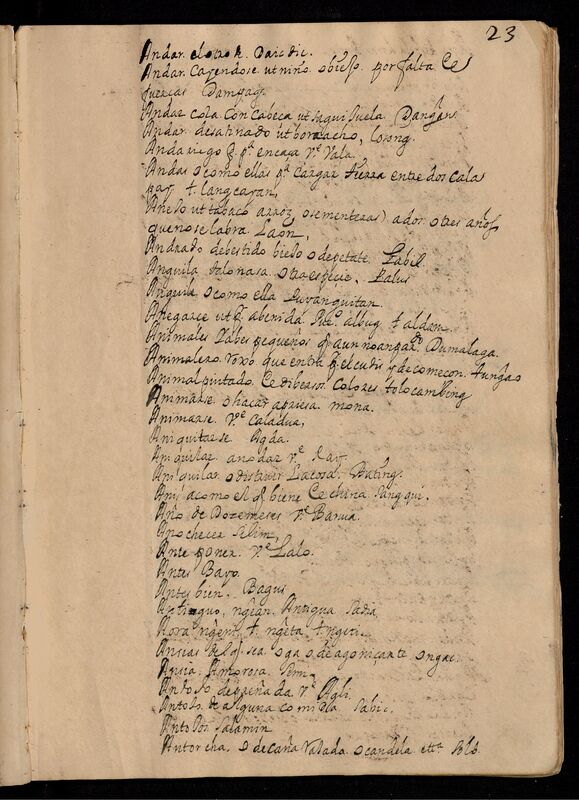 23
Andar el otro k. Daic dic.
Andar Cayendose ut niño o biejo por falta Ce
fuercas Dampag
Andar cola con Cabeca ut saqui suela Dangan
Andar desatinado ut borracho, losong.
Andariego q encaja Vᵉ Vala.
Andas o como ellas pᵃ cargar tierra entre dos cala
pay t langcayan,
Anejo ut tabaco arroz o sementeras) a dos o tres años
que no se labra. Laon,
Andrado de bestido biejo o de petate. Labil
Anguila talonasa. otra especie. Palus
Anguila o como ella Duvanguitan.
Anegarce ut abenida albug t aldam.
Animales Yabes pequeños q aun no Dumalaga.
Animalexo Roxo que entra el cutis y da comecon. tungao
Animal pintado Ce dibersos Colores tolocambing
Animarse o hacer apriesa. mona.
Animarse Vᵉ Caladua,
Aniquitarse Agda.
Aniquilar anodar Vᵉ
Aniquilar o distruir La cosa. Buting.
Anis acomo el q biene Ce china sangqui.
Año de Doze meses Vᵉ Barua.
Anochecer Silim,
Ante poner Vᵉ Lalo.
Antes Bayo.
Antes bien. Bagus
Antiguo, ngëan. Antigua Sadia
Aora ngeni, t. ngëta, t ngeti.
Ansias de q. sea o ga o de agoniçante ongac.
Ansia Amorosa
Antojo de preñada Vᵉ Agli.
Antojo de alguna comida Sabic.
Antojos Salamin
Antorcha, o de caña Vajada o candela ettᵃ